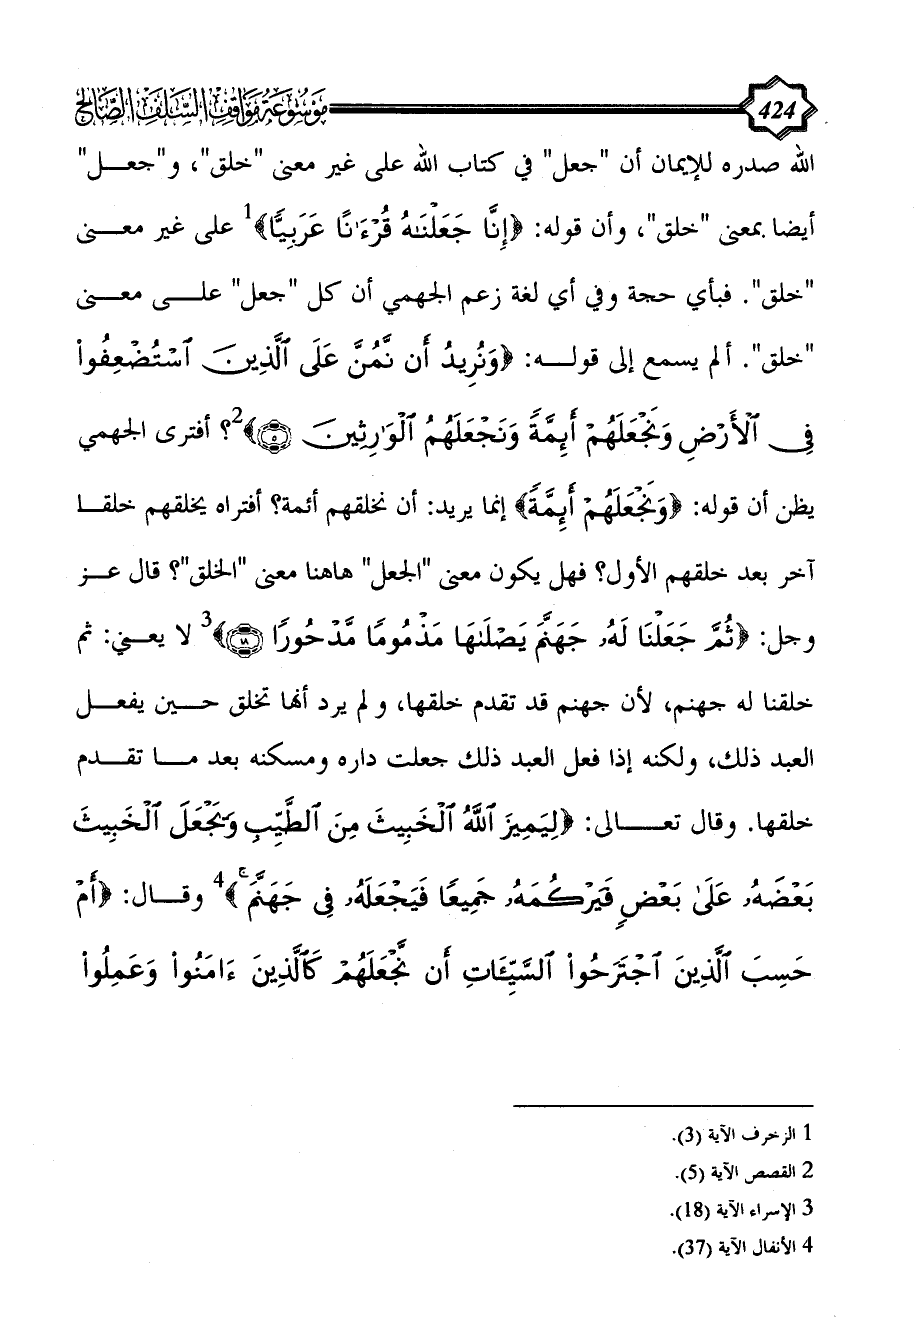 424 موسوعة مواقف السلف الصالح
الله صدره للإيمان أن "جعل" في كتاب الله على غير معنى "خلق"، و"جعــل"
أيضا بمعنى "خلق"، وأن قوله: ﴿إِنَّا جَعَلْنَٰهُ قُرْءَٰنًا عَرَبِيًّا﴾1 على غير معـــنى
"خلق". فبأي حجة وفي أي لغة زعم الجهمي أن كل "جعل" علـــى معـــنى
"خلق". ألم يسمع إلى قولـــه: ﴿وَنُرِيدُ أَن نَّمُنَّ عَلَى ٱلَّذِينَ ٱسْتُضْعِفُوا۟
فِى ٱلْأَرْضِ وَنَجْعَلَهُمْ أَئِمَّةً وَنَجْعَلَهُمُ ٱلْوَٰرِثِينَ ۝٥﴾2؟ أفترى الجهمي
يظن أن قوله: ﴿وَنَجْعَلَهُمْ أَئِمَّةً﴾ إنما يريد: أن نخلقهم أئمة؟ أفتراه يخلقهم خلقــا
آخر بعد خلقهم الأول؟ فهل يكون معنى "الجعل" هاهنا معنى "الخلق"؟ قال عــز
وجل: ﴿ثُمَّ جَعَلْنَا لَهُۥ جَهَنَّمَ يَصْلَىٰهَا مَذْمُومًا مَّدْحُورًا ۝١٨﴾3 لا يعـــني: ثم
خلقنا له جهنم، لأن جهنم قد تقدم خلقها، ولم يرد أنها تخلق حـــين يفعـــل
العبد ذلك، ولكنه إذا فعل العبد ذلك جعلت داره ومسكنه بعد مـــا تقـــدم
خلقها. وقال تعـــالى: ﴿لِيَمِيزَ ٱللَّهُ ٱلْخَبِيثَ مِنَ ٱلطَّيِّبِ وَيَجْعَلَ ٱلْخَبِيثَ
بَعْضَهُۥ عَلَىٰ بَعْضٍ فَيَرْكُمَهُۥ جَمِيعًا فَيَجْعَلَهُۥ فِى جَهَنَّمَ ۚ﴾4 وقـــال: ﴿أَمْ
حَسِبَ ٱلَّذِينَ ٱجْتَرَحُوا۟ ٱلسَّيِّـَٔاتِ أَن نَّجْعَلَهُمْ كَٱلَّذِينَ ءَامَنُوا۟ وَعَمِلُوا۟
1 الزخرف الآية (3).
2 القصص الآية (5).
3 الإسراء الآية (18).
4 الأنفال الآية (37).